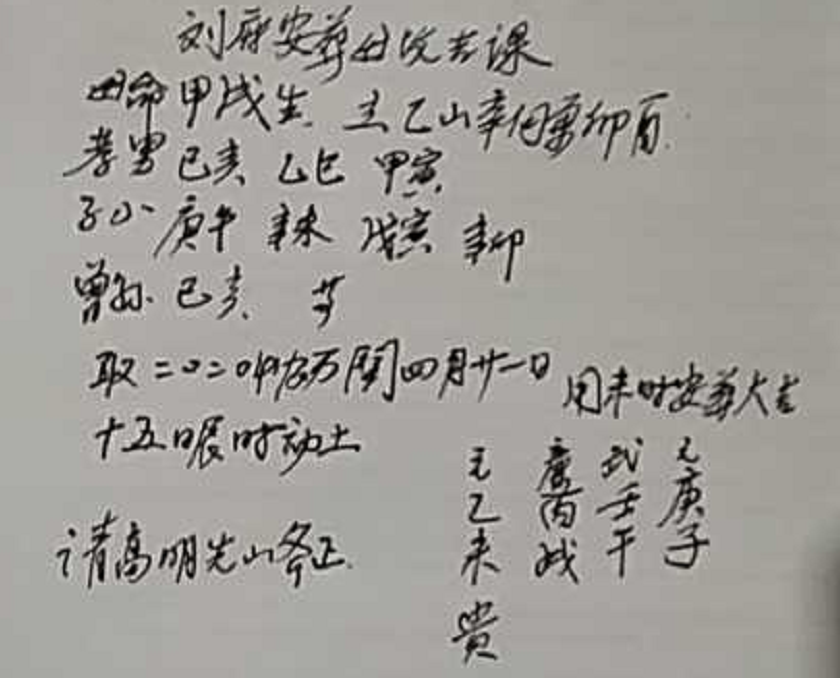 刘府安葬母皎吉课
母命甲戌生 立乙山辛向兼卯酉
孝男己亥 乙巳 甲寅
庚午 辛未 戊寅 辛卯
曾孙 己亥 等
取二〇二〇年农历閏四月廿一日 用未时安葬大吉
十五日辰时动土
请高明先山斧正
元庚子
武壬午
廉丙戌
元乙未 贵